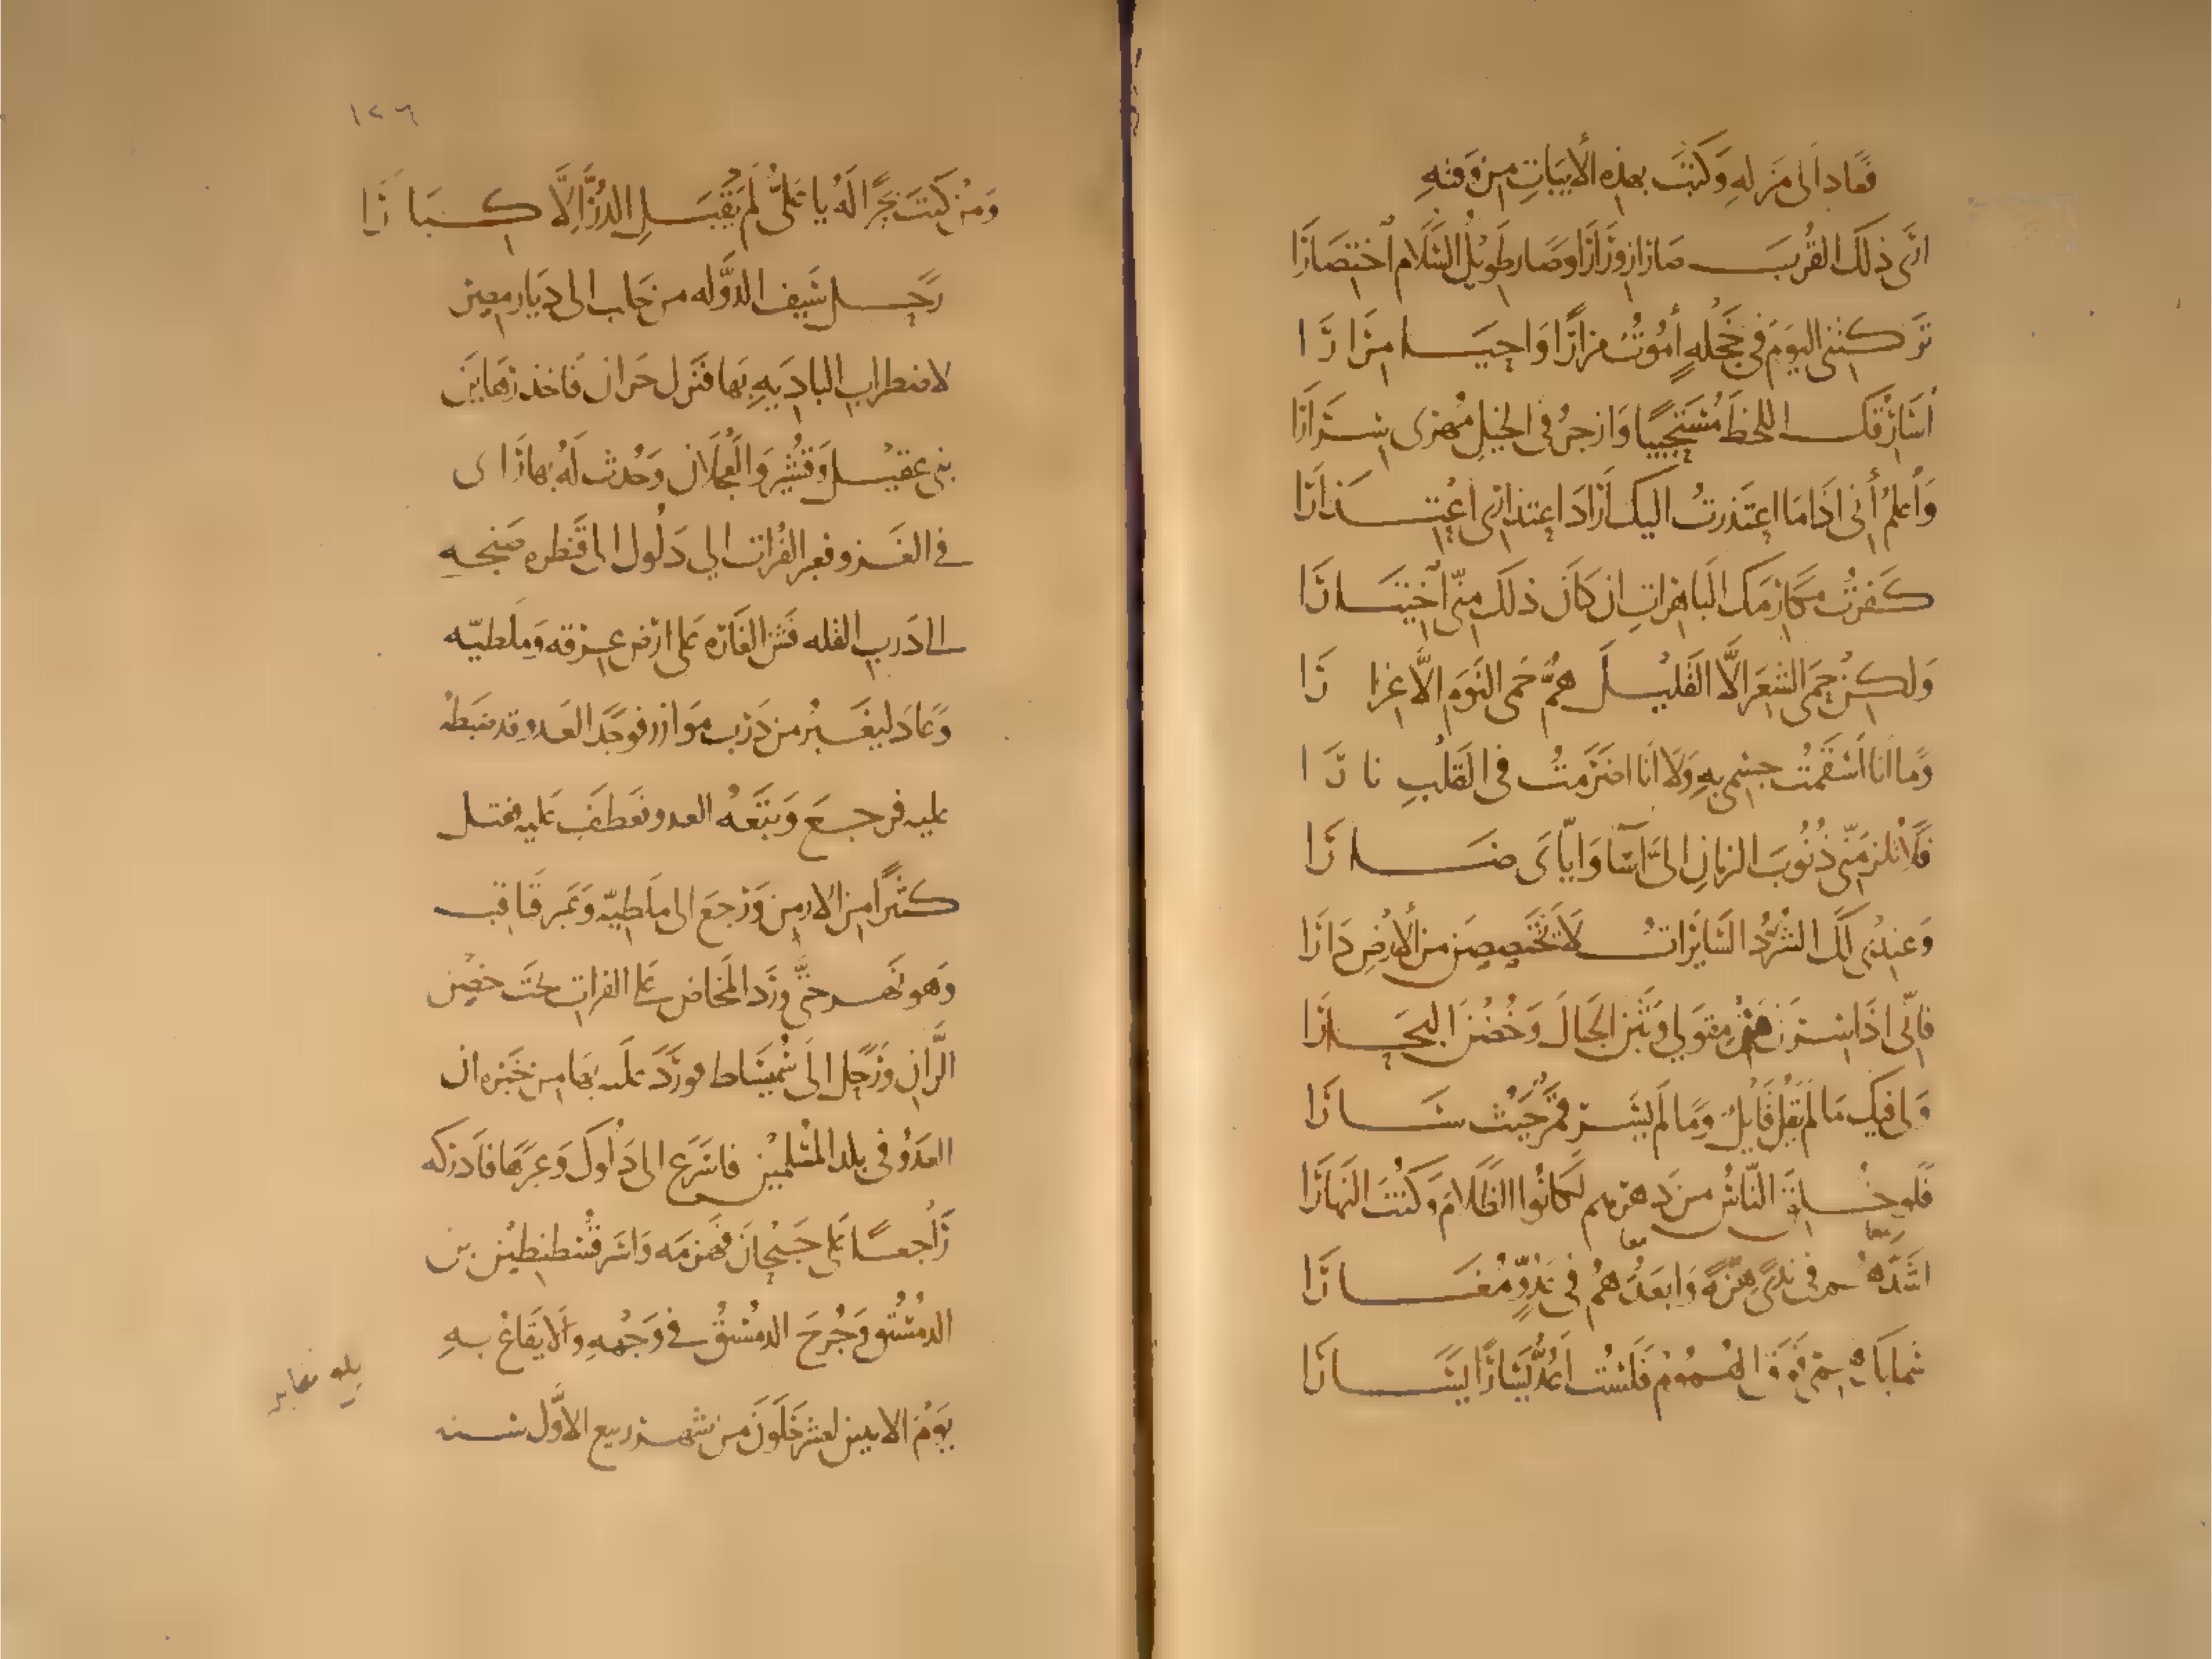 فعاد الى منزله وكتب بهذه الأبيات من وقته
ارى ذلك القرب صار ازورارا وصار طويل السلام اختصارا
تركتني اليوم في خجلةٍ أموت مرارا واحيا مرارا
أسارقك اللحظ مستحييا وازجر في الخيل مهرى سرارا
وأعلم أني اذا ما اعتذرت اليك اراد اعتذارى اعتذارا
كفرت مكارمك الباهرات ان كان ذلك منّي اختيارا
ولكن حمى الشعر الّا القليل همٌّ حمى النوم الّا غرارا
وما انا اسقمت جسمي به ولا انا اضرمت في القلب نارا
فلا تلزمنّي ذنوب الزمان الىّ اسا وايّاى ضارا
وعندى لك الشرّد السائرات لا تختصصن من الأرض دارا
فانّى اذا سرن من مقولي وثبن الجبال وخضن البحارا
ولي فيك ما لم يقل قايل وما لم يسر قمر حيث سارا
فلو خلق الناس من دهرهم لكانوا الظلام وكنت النهارا
اشدّهم في ندىً هزّة وابعدهم في عدوٍّ مغارا
سما بك همى فوق الهموم فلست اعدّ يسارا يسارا
١٢٦
ومن كنت بحرا له يا علىّ لم يقبل الدرّ الّا كبارا
رحل سيف الدولة من حلب الى ديار مضر
لاضطراب البادية بها فنزل حران فاخذ رهاين
بنى عقيل وقشير والعجلان وحدث له بها راى
في الغزو فعبر الفرات الي دلول الى قنطره صنجه
الى درب القله فشن الغاره على ارض عرقه وملطيّه
وعاد ليعبر من درب موازر فوجد العدو قد ضبطه
عليه فرجع وتبعه العدو فعطف عليه فقتل
كثيرا من الارمن ورجع الى ملطيّه وعبر قباقب
وهو نهر حتّى ورد المخاض على الفرات تحت حصن
الرّان ورحل الى سميساط فورد عليه بها من خبره ان
العدوّ في بلد المسلمين فاسرع الى دلول وعبرها فادركه
راجعا على جيحان فهزمه واسر قسطنطين بن
الدمستق وجرح الدمستق في وجهه والايقاع به
يوم الاثنين لعشر خلون من شهر ربيع الاول سنه
بلغ مقابله